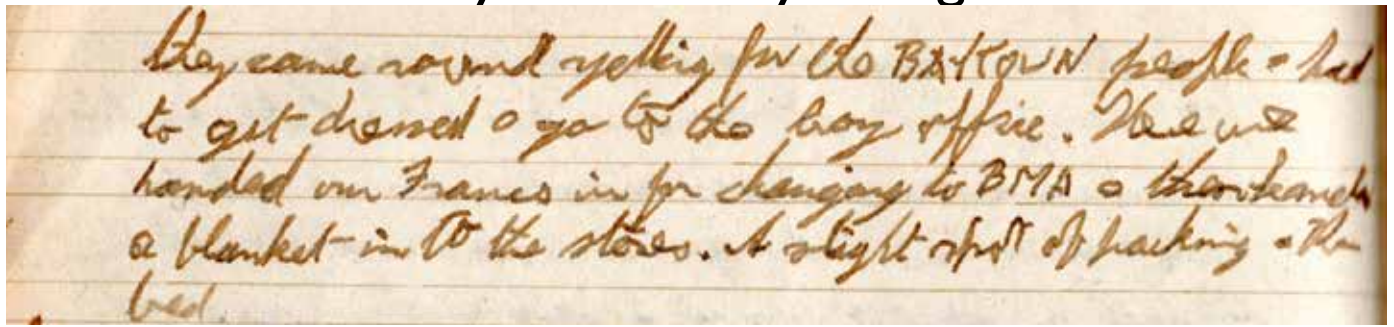 they came round yelling for the BAYTOWN people & had
to get dressed & go to the bay office. Here we
handed our Francs in for changing to BMA & then handed
a blanket in to the stores. A slight spot of packing & then
bed.